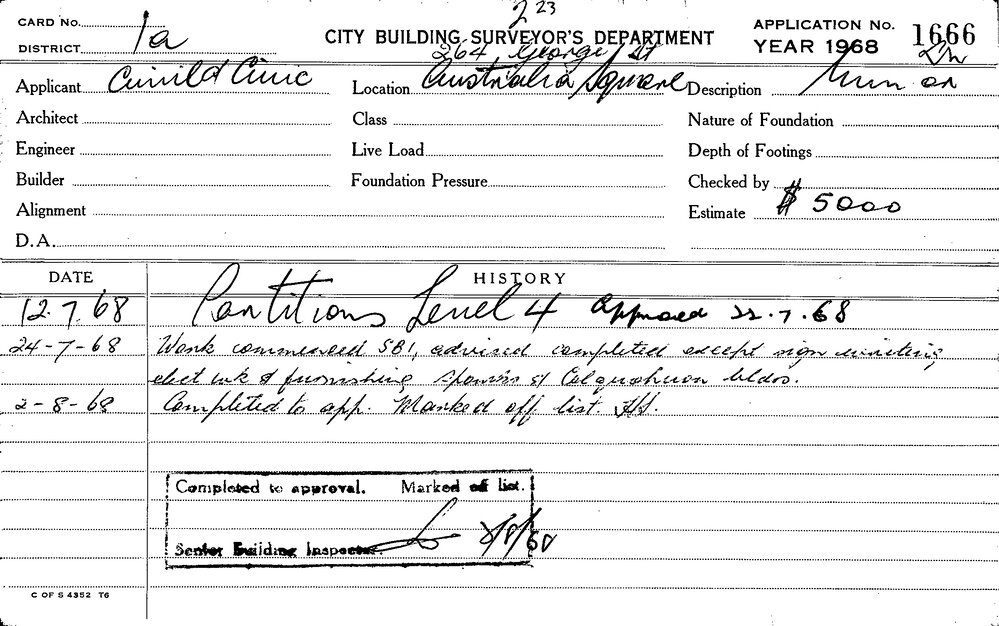 2 23
CARD No. 1a
DISTRICT
CITY BUILDING SURVEYOR'S DEPARTMENT
APPLICATION No. 1666
YEAR 1968
264 George St
Applicant Civil & Civic
Location Australia Square
Description
Architect
Class
Nature of Foundation
Engineer
Live Load
Depth of Footings
Builder
Foundation Pressure
Checked by
Alignment
Estimate $ 5000
D.A.
DATE
HISTORY
12.7.68 Partitions Level 4 approved 22.7.68
24-7-68 Work commenced SBI, advised completed except sign writing
elect wk & furnishing bldrs.
2-8-68 Completed to app. Marked off list.
Completed to approval. Marked off list.
Senior Building Inspector.
C OF S 4352 T6